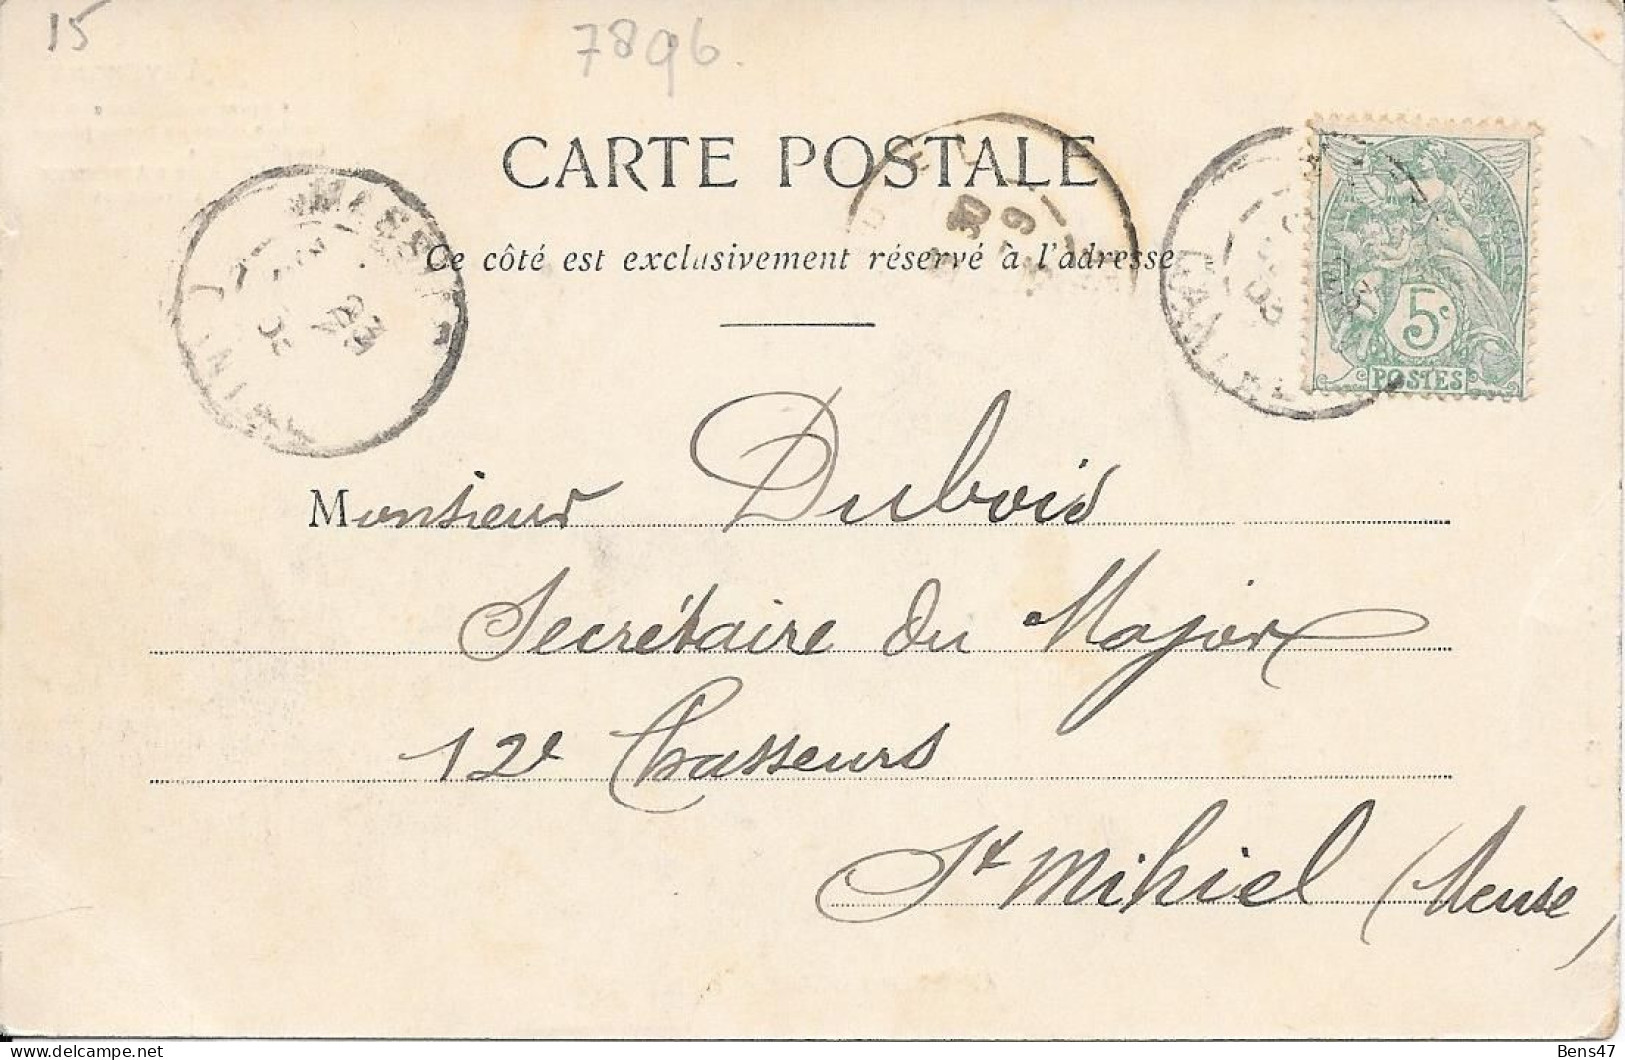 15
7896
CARTE POSTALE
Ce côté est exclusivement réservé à l'adresse
5c
POSTES
Monsieur Dubois
Secrétaire du Major
12e Chasseurs
St Mihiel (Meuse)
Bens47